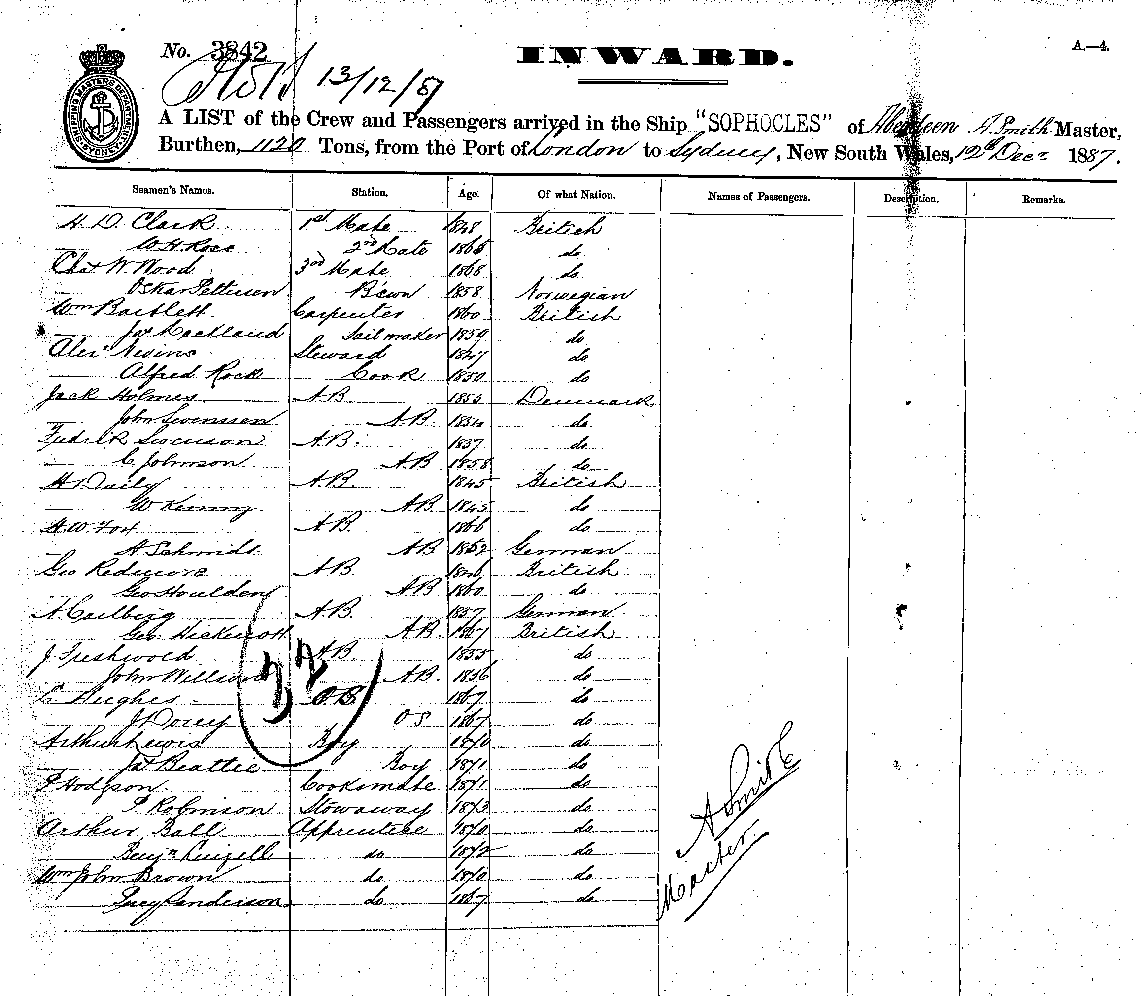 No. 3842
INWARD.
A.—4.
SHIPPING MASTERS DEPARTMENT SYDNEY
13/12/87
A LIST of the Crew and Passengers arrived in the Ship "SOPHOCLES" of Aberdeen A. Smith Master,
Burthen, 1120 Tons, from the Port of London to Sydney, New South Wales, 12th Decr 1887.
Seamen's Names. Station. Age. Of what Nation. Names of Passengers. Description. Remarks.
H. D. Clark 1st Mate 1848 British
W. H. Rose 2nd Mate 1865 do
Chas W. Wood 3rd Mate 1868 do
Oskar Petterson B'swn 1858 Norwegian
Wm Bartlett Carpenter 1860 British
Jas Sailmaker 1859 do
Alexr Steward 1847 do
Alfred Rock Cook 1850 do
Jack Holmes A.B. 1855 Denmark
John Swenssen A.B. do
Swenson A.B. 1857 do
C. Johnson A.B. 1858 do
H. Daily A.B. 1845 British
W. Kenny A.B. 1845 do
H. W. Fox A.B. 1866 do
A Schmidt A.B. 1862 German
Geo Redmore A.B. British
Geo Houlden A.B. 1860 do
A. Carlberg A.B. 1857 German
Geo. A.B. 1867 British
J. Freshwold A.B. 1855 do
John Willson A.B. 1856 do
C. Hughes O.S. 1867 do
J. Dorey O S 1867 do
Arthur Lewis Boy 1870 do
Jas Beattie Boy 1871 do
P. Hodgson Cooksmate 1871 do
P. Robinson Stowaway 1873 do
Arthur Ball Apprentice 1870 do
Benjn do 1872 do
Wm John Brown do 1870 do
Percy Sanderson do 1867 do
32
A Smith
Master